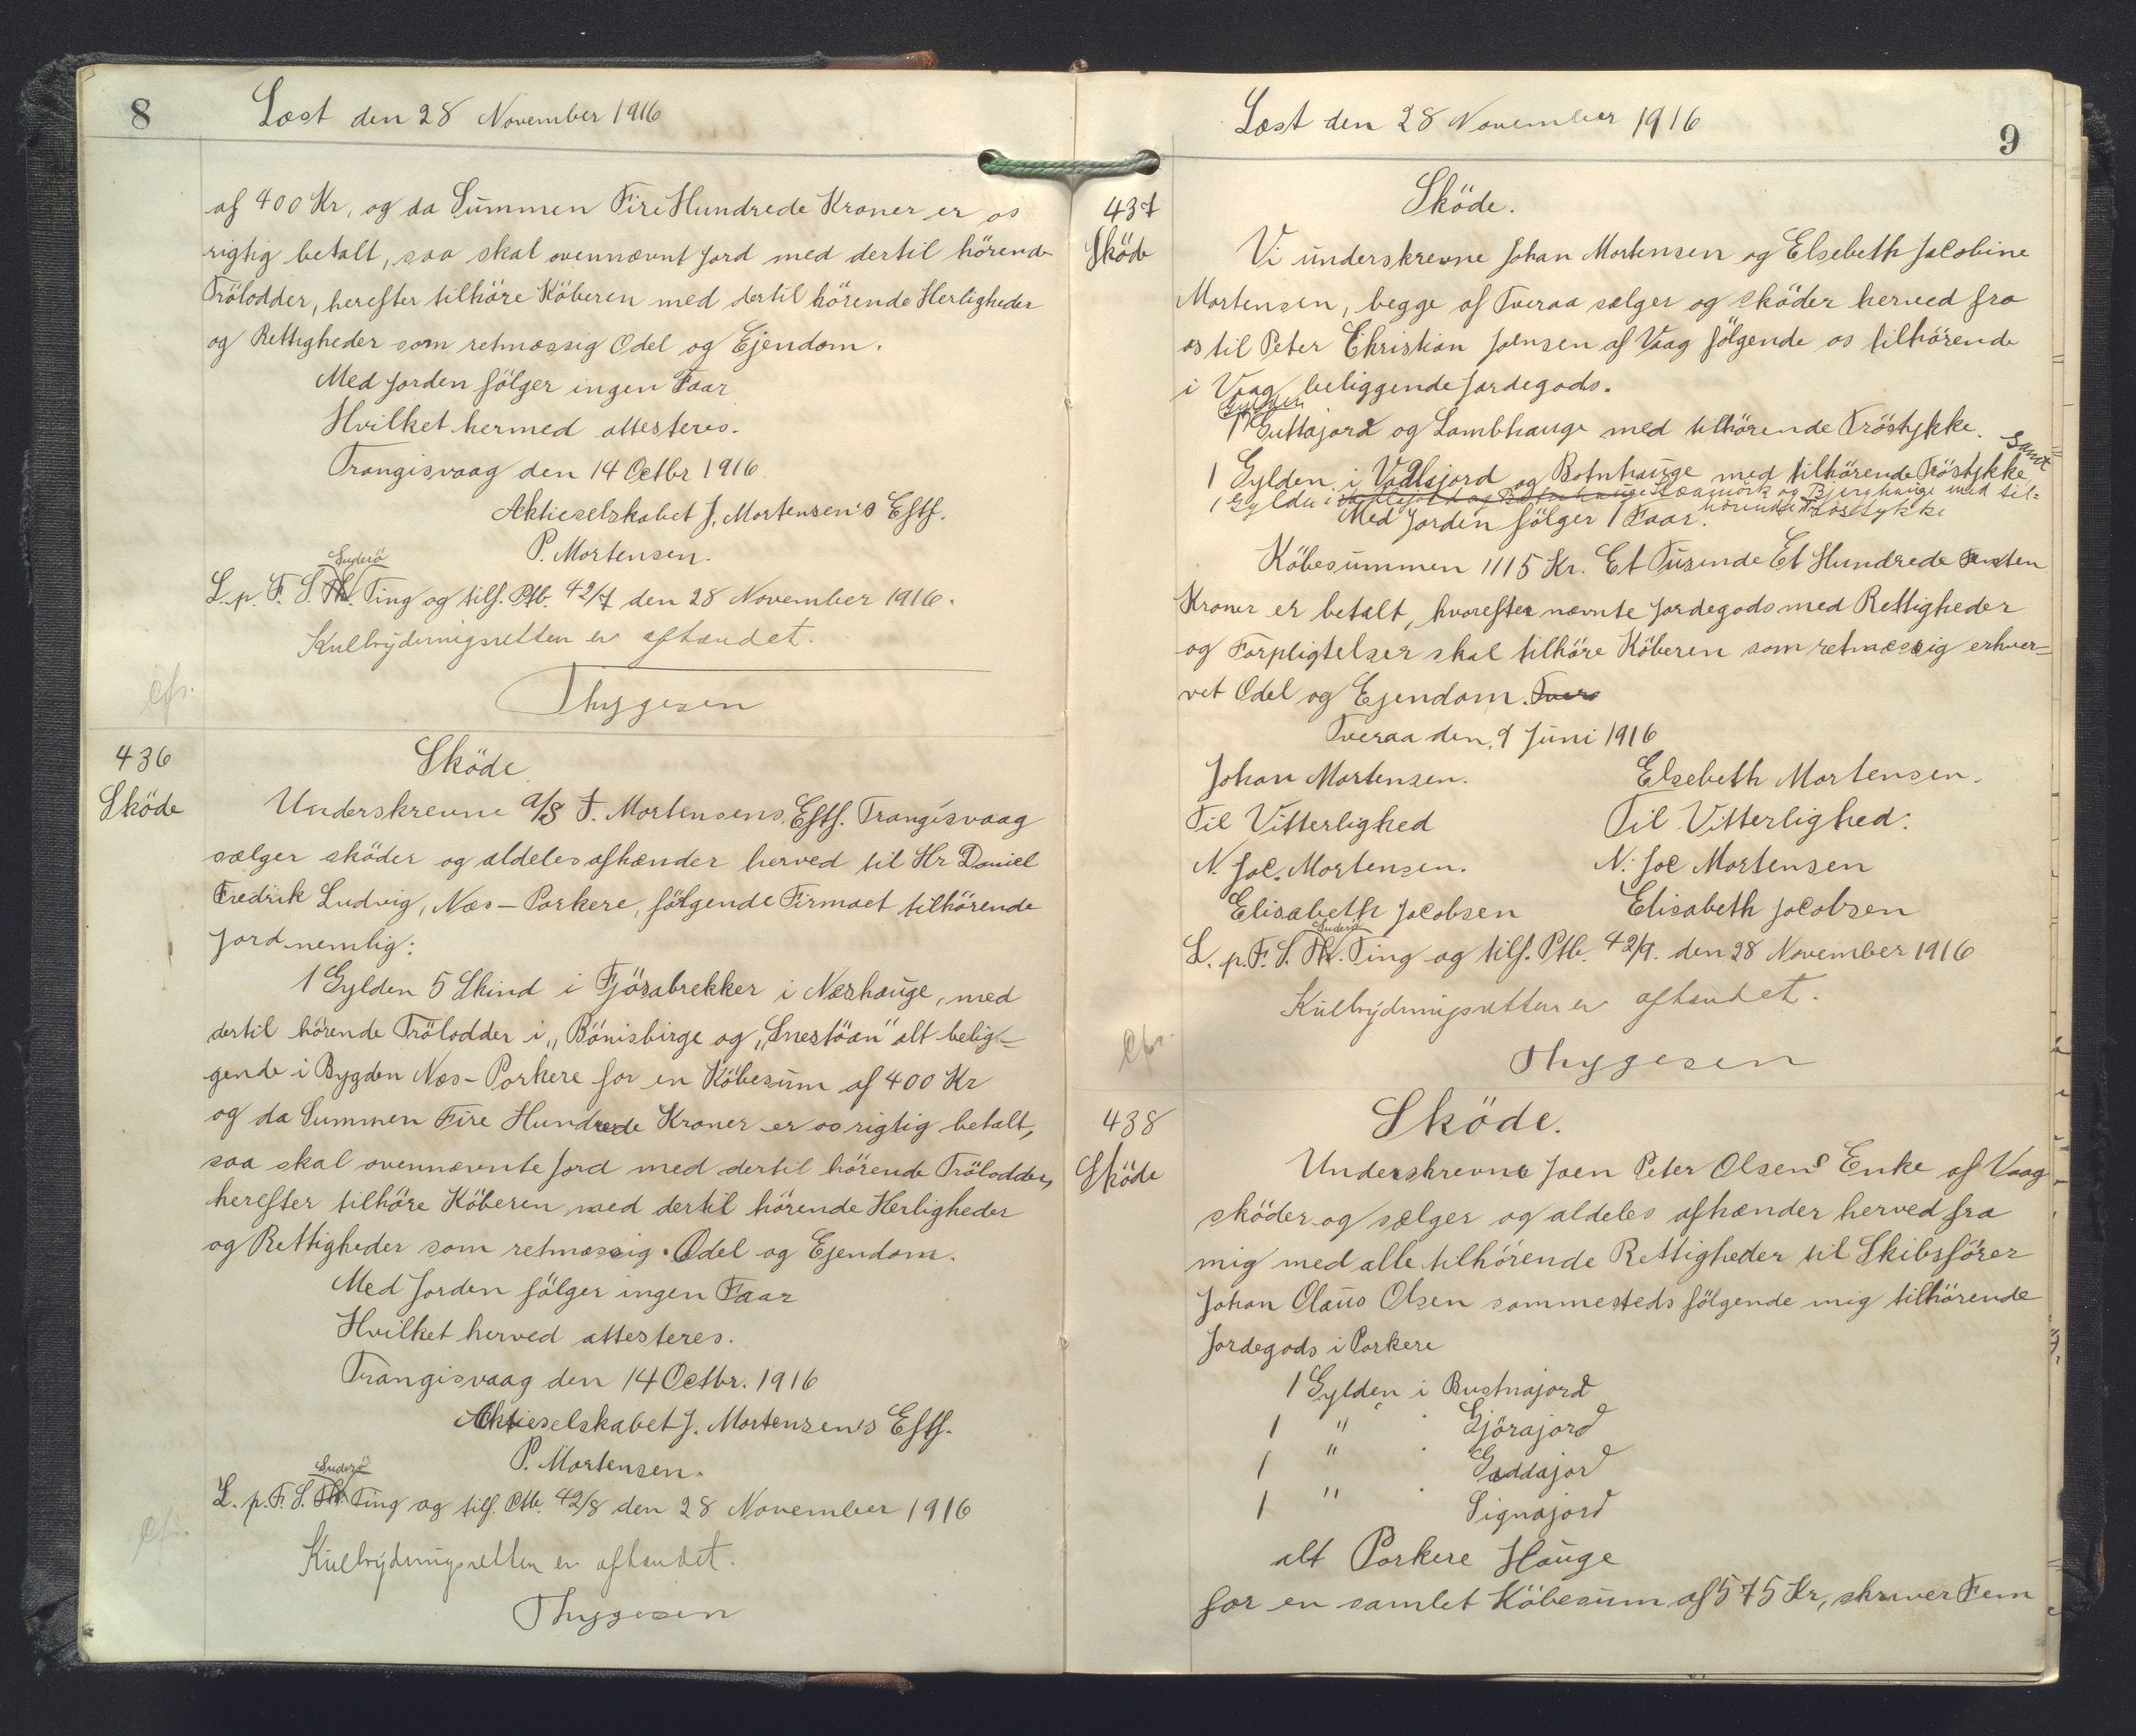 8
Læst den 28 November 1916
af 400 Kr, og da Summen Fire Hundrede Kroner er os
rigtig betalt, saa skal ovennævnt Jord med dertil hörende
Trölodder, herefter tilhöre Köberen med dertil hörende Herligheder
og Rettigheder som retmæssig Odel og Ejendom.
Med Jorden fölger ingen Faar
Hvilket hermed attesteres.
Trangisvaag den 14 Octbr 1916
Aktieselskabet J. Mortensen's Eftf.
P. Mortensen.
Suderö
L. p. F. S. Th. Ting og tilf. Ptb. 42/7 den 28 November 1916.
Kulbrydningsretten er afhændet.
Thygesen
cfr.
436
Sköde
Sköde
Underskrevne A/S J. Mortensens Eftf. Trangisvaag
sælger sköder og aldeles afhænder herved til Hr Daniel
Fredrik Ludvig, Næs-Porkere, fölgende Firmaet tilhörende
Jord nemlig:
1 Gylden 5 Skind i Fjösabrekker i Næshauge, med
dertil hörende Trölodder i „Bönisbirge og „Snestöan" alt belig-
gende i Bygden Næs-Porkere for en Köbesum af 400 Kr
og da Summen Fire Hundrede Kroner er os rigtig betalt,
saa skal ovennævnte Jord med dertil hörende Trölodder,
herefter tilhöre Köberen med dertil hörende Herligheder
og Rettigheder som retmæssig Odel og Ejendom.
Med Jorden fölger ingen Faar
Hvilket herved attesteres.
Trangisvaag den 14 Octbr. 1916
Aktieselskabet J. Mortensen's Eftf.
P. Mortensen.
Suderö
L. p. F. S. Th. Ting og tilf. Ptb. 42/8 den 28 November 1916
Kulbrydningsretten er afhændet.
cfr.
Thygesen
Læst den 28 November 1916
9
437
Sköde
Sköde.
Vi underskrevne Johan Mortensen og Elsebeth Jacobine
Mortensen, begge af Tveraa sælger og sköder herved fra
os til Peter Christian Joensen af Vaag fölgende os tilhörende
i Vaag beliggende Jordegods.
Gylden
1 Guttajord og Lambhauge med tilhörende Tröstykke. Samt
1 Gylden i Vadlajord og Botnhauge med tilhörende Tröstykke
1 Gylden i Vadlejord og Botnhauge Leamörk og Bjerghauge med til=
hörende Tröstykke
Med Jorden fölger 1 Faar.
Köbesummen 1115 Kr. Et Tusende Et Hundrede Femten
Kroner er betalt, hvorefter nævnte Jordegods med Rettigheder
og Forpligtelser skal tilhöre Köberen som retmæssig erhver-
vet Odel og Ejendom. Tvera
Tveraa den, 9 Juni 1916
Johan Mortensen. Elsebeth Mortensen.
Til Vitterlighed Til Vitterlighed:
N. Jac. Mortensen. N. Jac Mortensen
Elisabeth Jacobsen Elisabeth Jacobsen
Suderö
L. p. F. S. Th. Ting og tilf. Ptb. 42/9. den 28 November 1916
Kulbrydningsretten er afhændet.
cfr.
Thygesen
438
Sköde
Sköde.
Underskrevne Joen Peter Olsens Enke af Vaag
sköder og sælger og aldeles afhænder herved fra
mig med alle tilhörende Rettigheder til Skibsförer
Johan Olaus Olsen sammesteds fölgende mig tilhörende
Jordegods i Porkere
1 Gylden i Bustnajord
1 " " Gjörajord
1 " " Gaddajord
1 " " Signajord
alt Porkere Hauge
for en samlet Köbesum af 575 Kr, skriver Fem